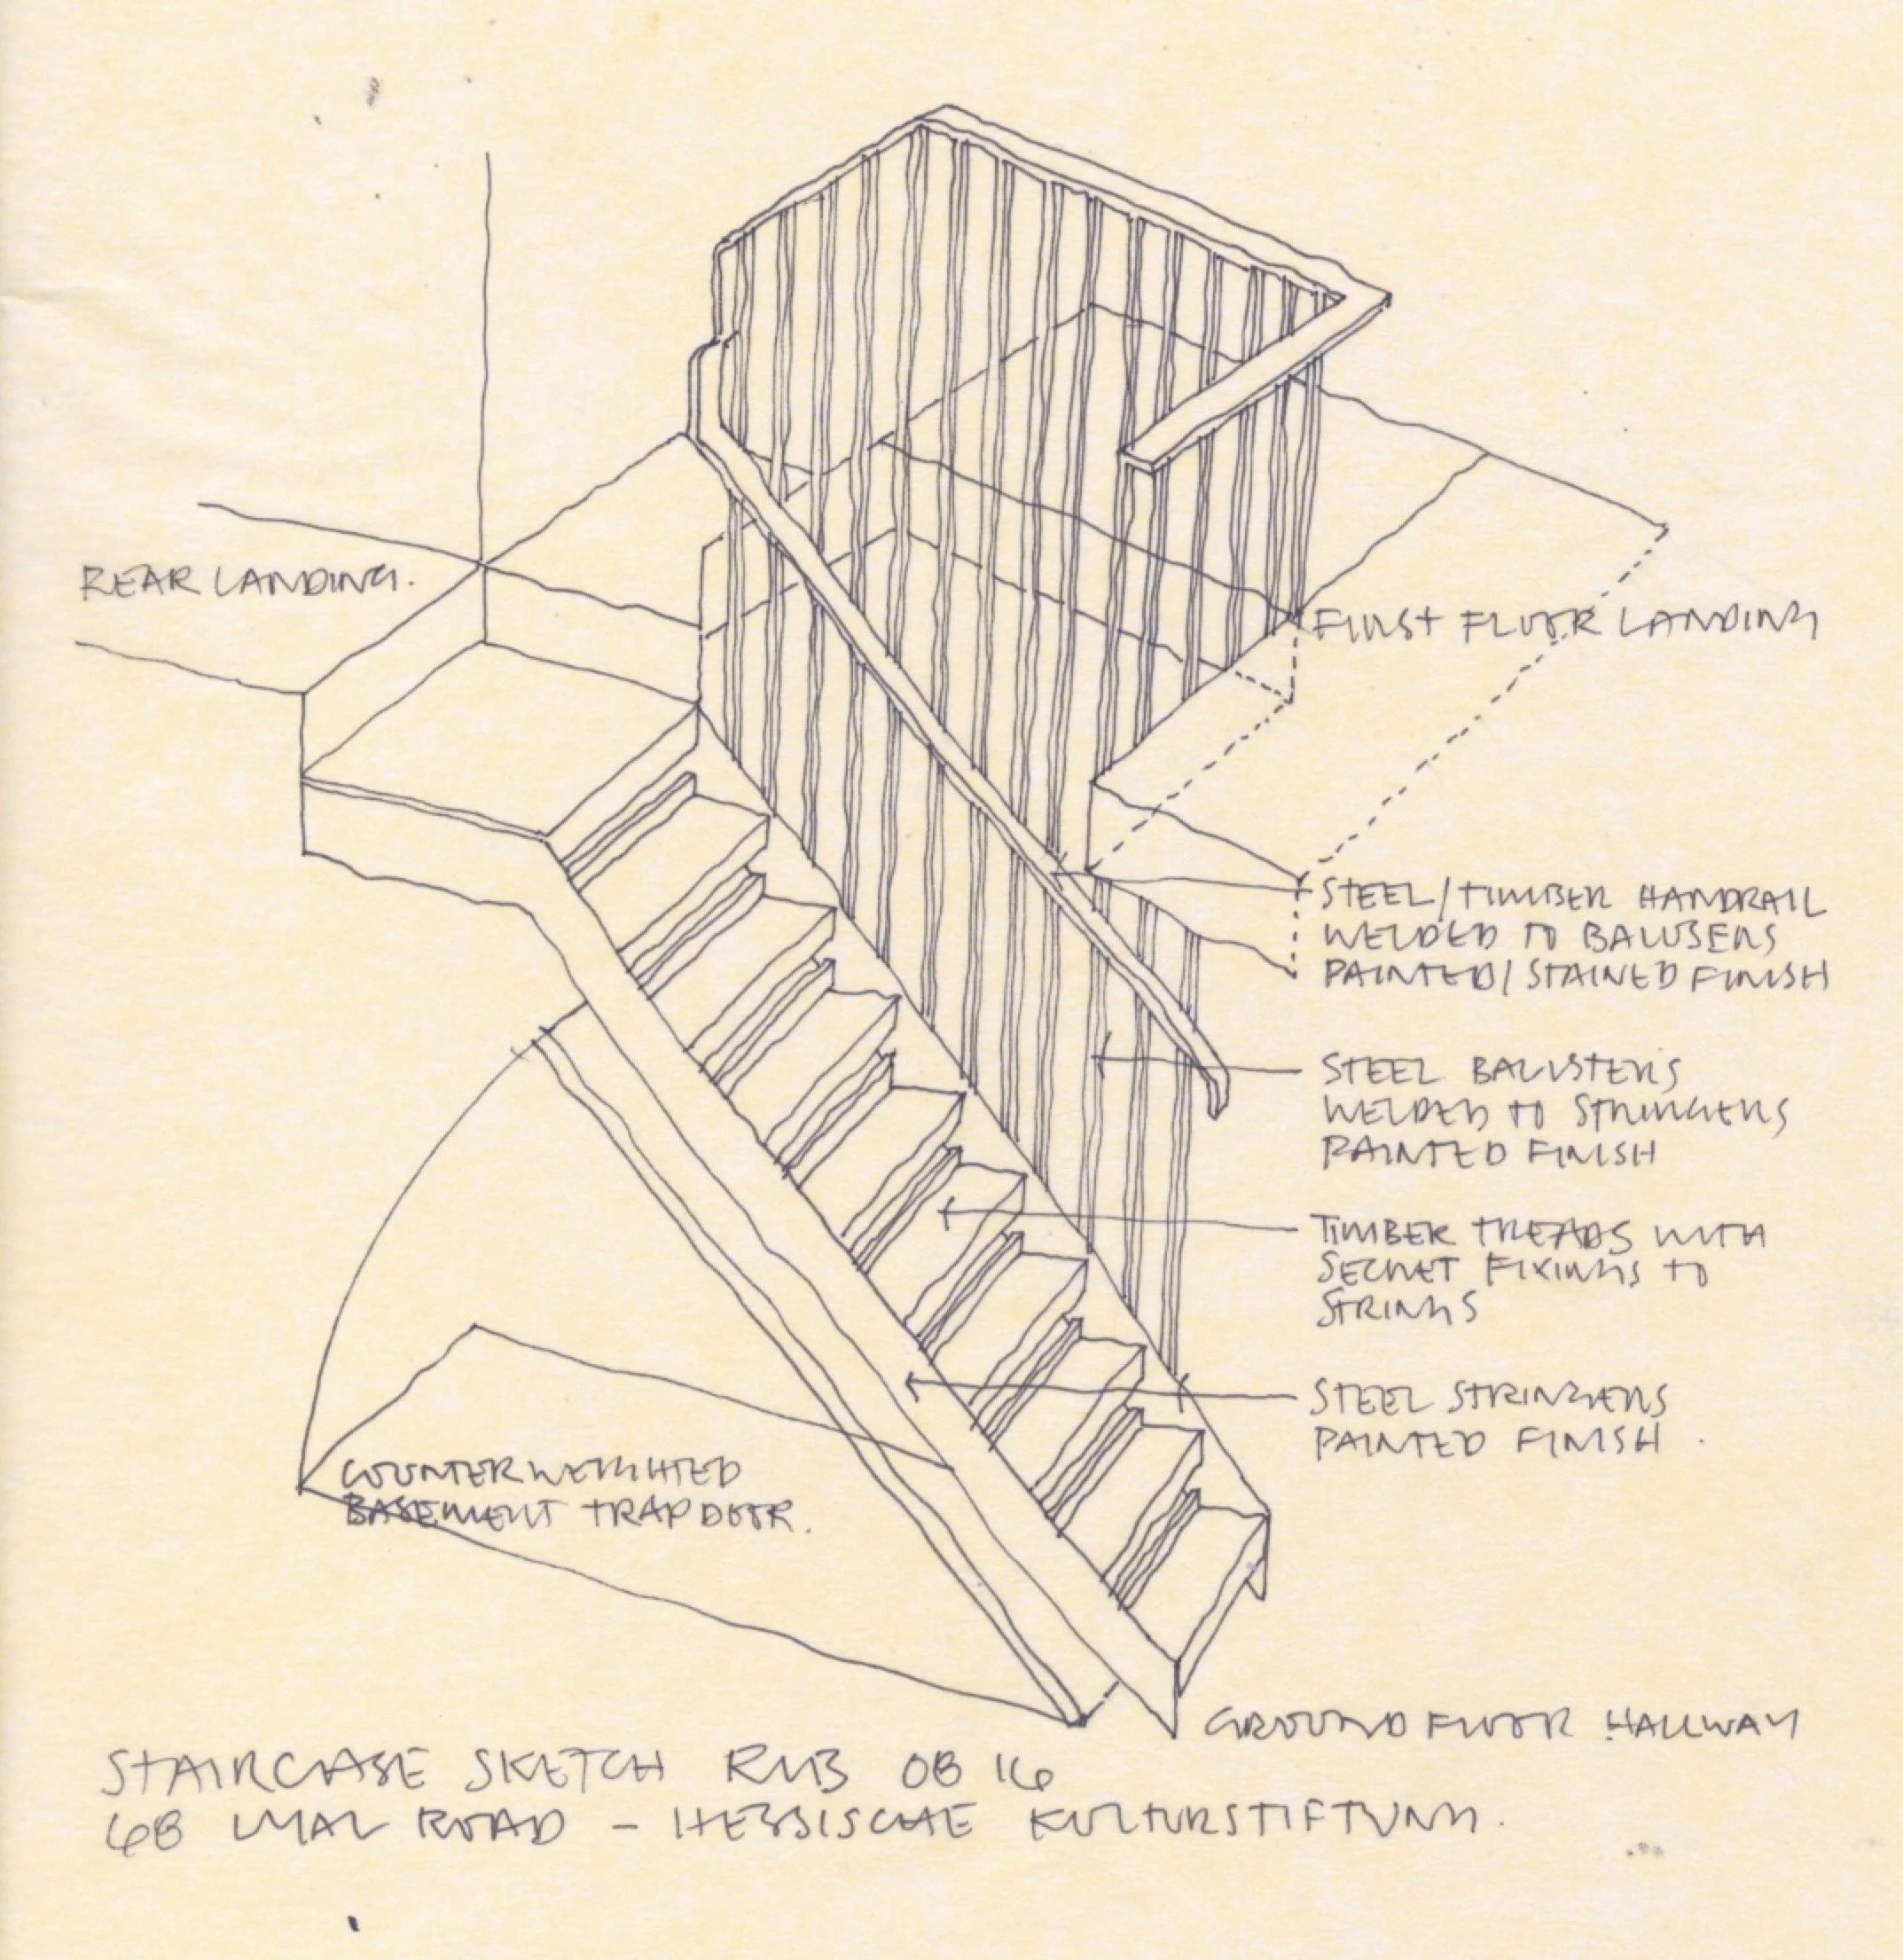 REAR LANDING.
FIRST FLOOR LANDING
STEEL/TIMBER HANDRAIL
WELDED TO BALUSERS
PAINTED/STAINED FINISH
STEEL BALUSTERS
WELDED TO STRINGERS
PAINTED FINISH
TIMBER TREADS WITH
SECRET FIXINGS TO
STRINGS
STEEL STRINGERS
PAINTED FINISH.
COUNTERWEIGHTED
BASEMENT TRAP DOOR.
GROUND FLOOR HALLWAY
STAIRCASE SKETCH 08 16
68 LYAL ROAD - HESSISCHE KULTURSTIFTUNG.